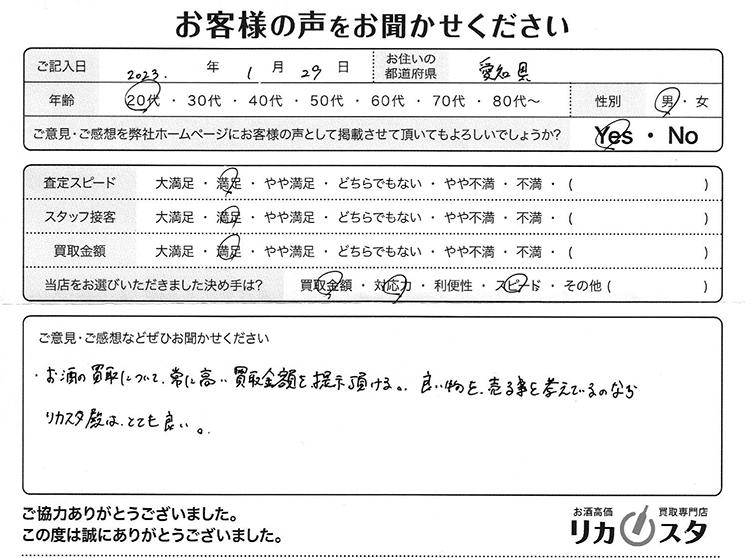 お客様の声をお聞かせください
ご記入日 2023. 年 1 月 29 日 お住いの都道府県 愛知県
年齢 20代・30代・40代・50代・60代・70代・80代～ 性別 男・女
ご意見・ご感想を弊社ホームページにお客様の声として掲載させて頂いてもよろしいでしょうか? Yes・No
査定スピード 大満足・満足・やや満足・どちらでもない・やや不満・不満・( )
スタッフ接客 大満足・満足・やや満足・どちらでもない・やや不満・不満・( )
買取金額 大満足・満足・やや満足・どちらでもない・やや不満・不満・( )
当店をお選びいただきました決め手は? 買取金額・対応力・利便性・スピード・その他( )
ご意見・ご感想などぜひお聞かせください
・お酒の買取について、常に高い買取金額を提示頂ける。良い物を、売る事を考えているのなら
リカスタ殿は、とても良い。
ご協力ありがとうございました。
この度は誠にありがとうございました。
お酒高価 買取専門店
リカスタ